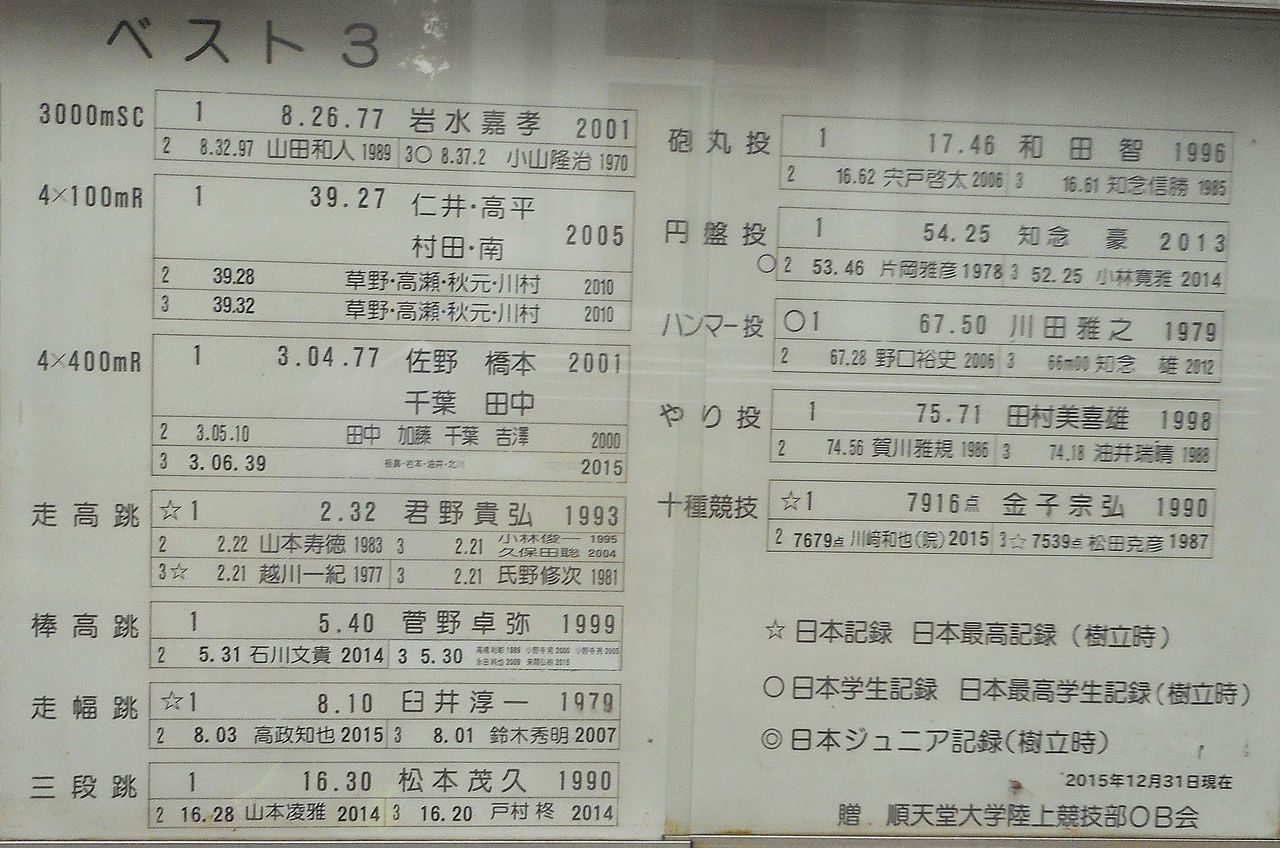 ベスト3
3000mSC 1 8.26.77 岩水嘉孝 2001
2 8.32.97 山田和人 1989 3○ 8.37.2 小山隆治 1970
4×100mR 1 39.27 仁井・高平
村田・南 2005
2 39.28 草野・高瀬・秋元・川村 2010
3 39.32 草野・高瀬・秋元・川村 2010
4×400mR 1 3.04.77 佐野 橋本 2001
千葉 田中
2 3.05.10 田中 加藤 千葉 吉澤 2000
3 3.06.39 2015
走高跳 ☆1 2.32 君野貴弘 1993
2 2.22 山本寿徳 1983 3 2.21 小林俊一 1995
久保田聡 2004
3☆ 2.21 越川一紀 1977 3 2.21 氏野修次 1981
棒高跳 1 5.40 菅野卓弥 1999
2 5.31 石川文貴 2014 3 5.30
走幅跳 ☆1 8.10 臼井淳一 1979
2 8.03 高政知也 2015 3 8.01 鈴木秀明 2007
三段跳 1 16.30 松本茂久 1990
2 16.28 山本凌雅 2014 3 16.20 戸村柊 2014
砲丸投 1 17.46 和田智 1996
2 16.62 宍戸啓太 2006 3 16.61 知念信勝 1985
円盤投 1 54.25 知念豪 2013
○2 53.46 片岡雅彦 1978 3 52.25 小林寛雅 2014
ハンマー投 ○1 67.50 川田雅之 1979
2 67.28 野口裕史 2006 3 66m00 知念雄 2012
やり投 1 75.71 田村美喜雄 1998
2 74.56 賀川雅規 1986 3 74.18 油井瑞晴 1988
十種競技 ☆1 7916点 金子宗弘 1990
2 7679点 川﨑和也(院) 2015 3☆ 7539点 松田克彦 1987
☆ 日本記録 日本最高記録 (樹立時)
○ 日本学生記録 日本最高学生記録(樹立時)
◎ 日本ジュニア記録(樹立時)
2015年12月31日現在
贈 順天堂大学陸上競技部OB会